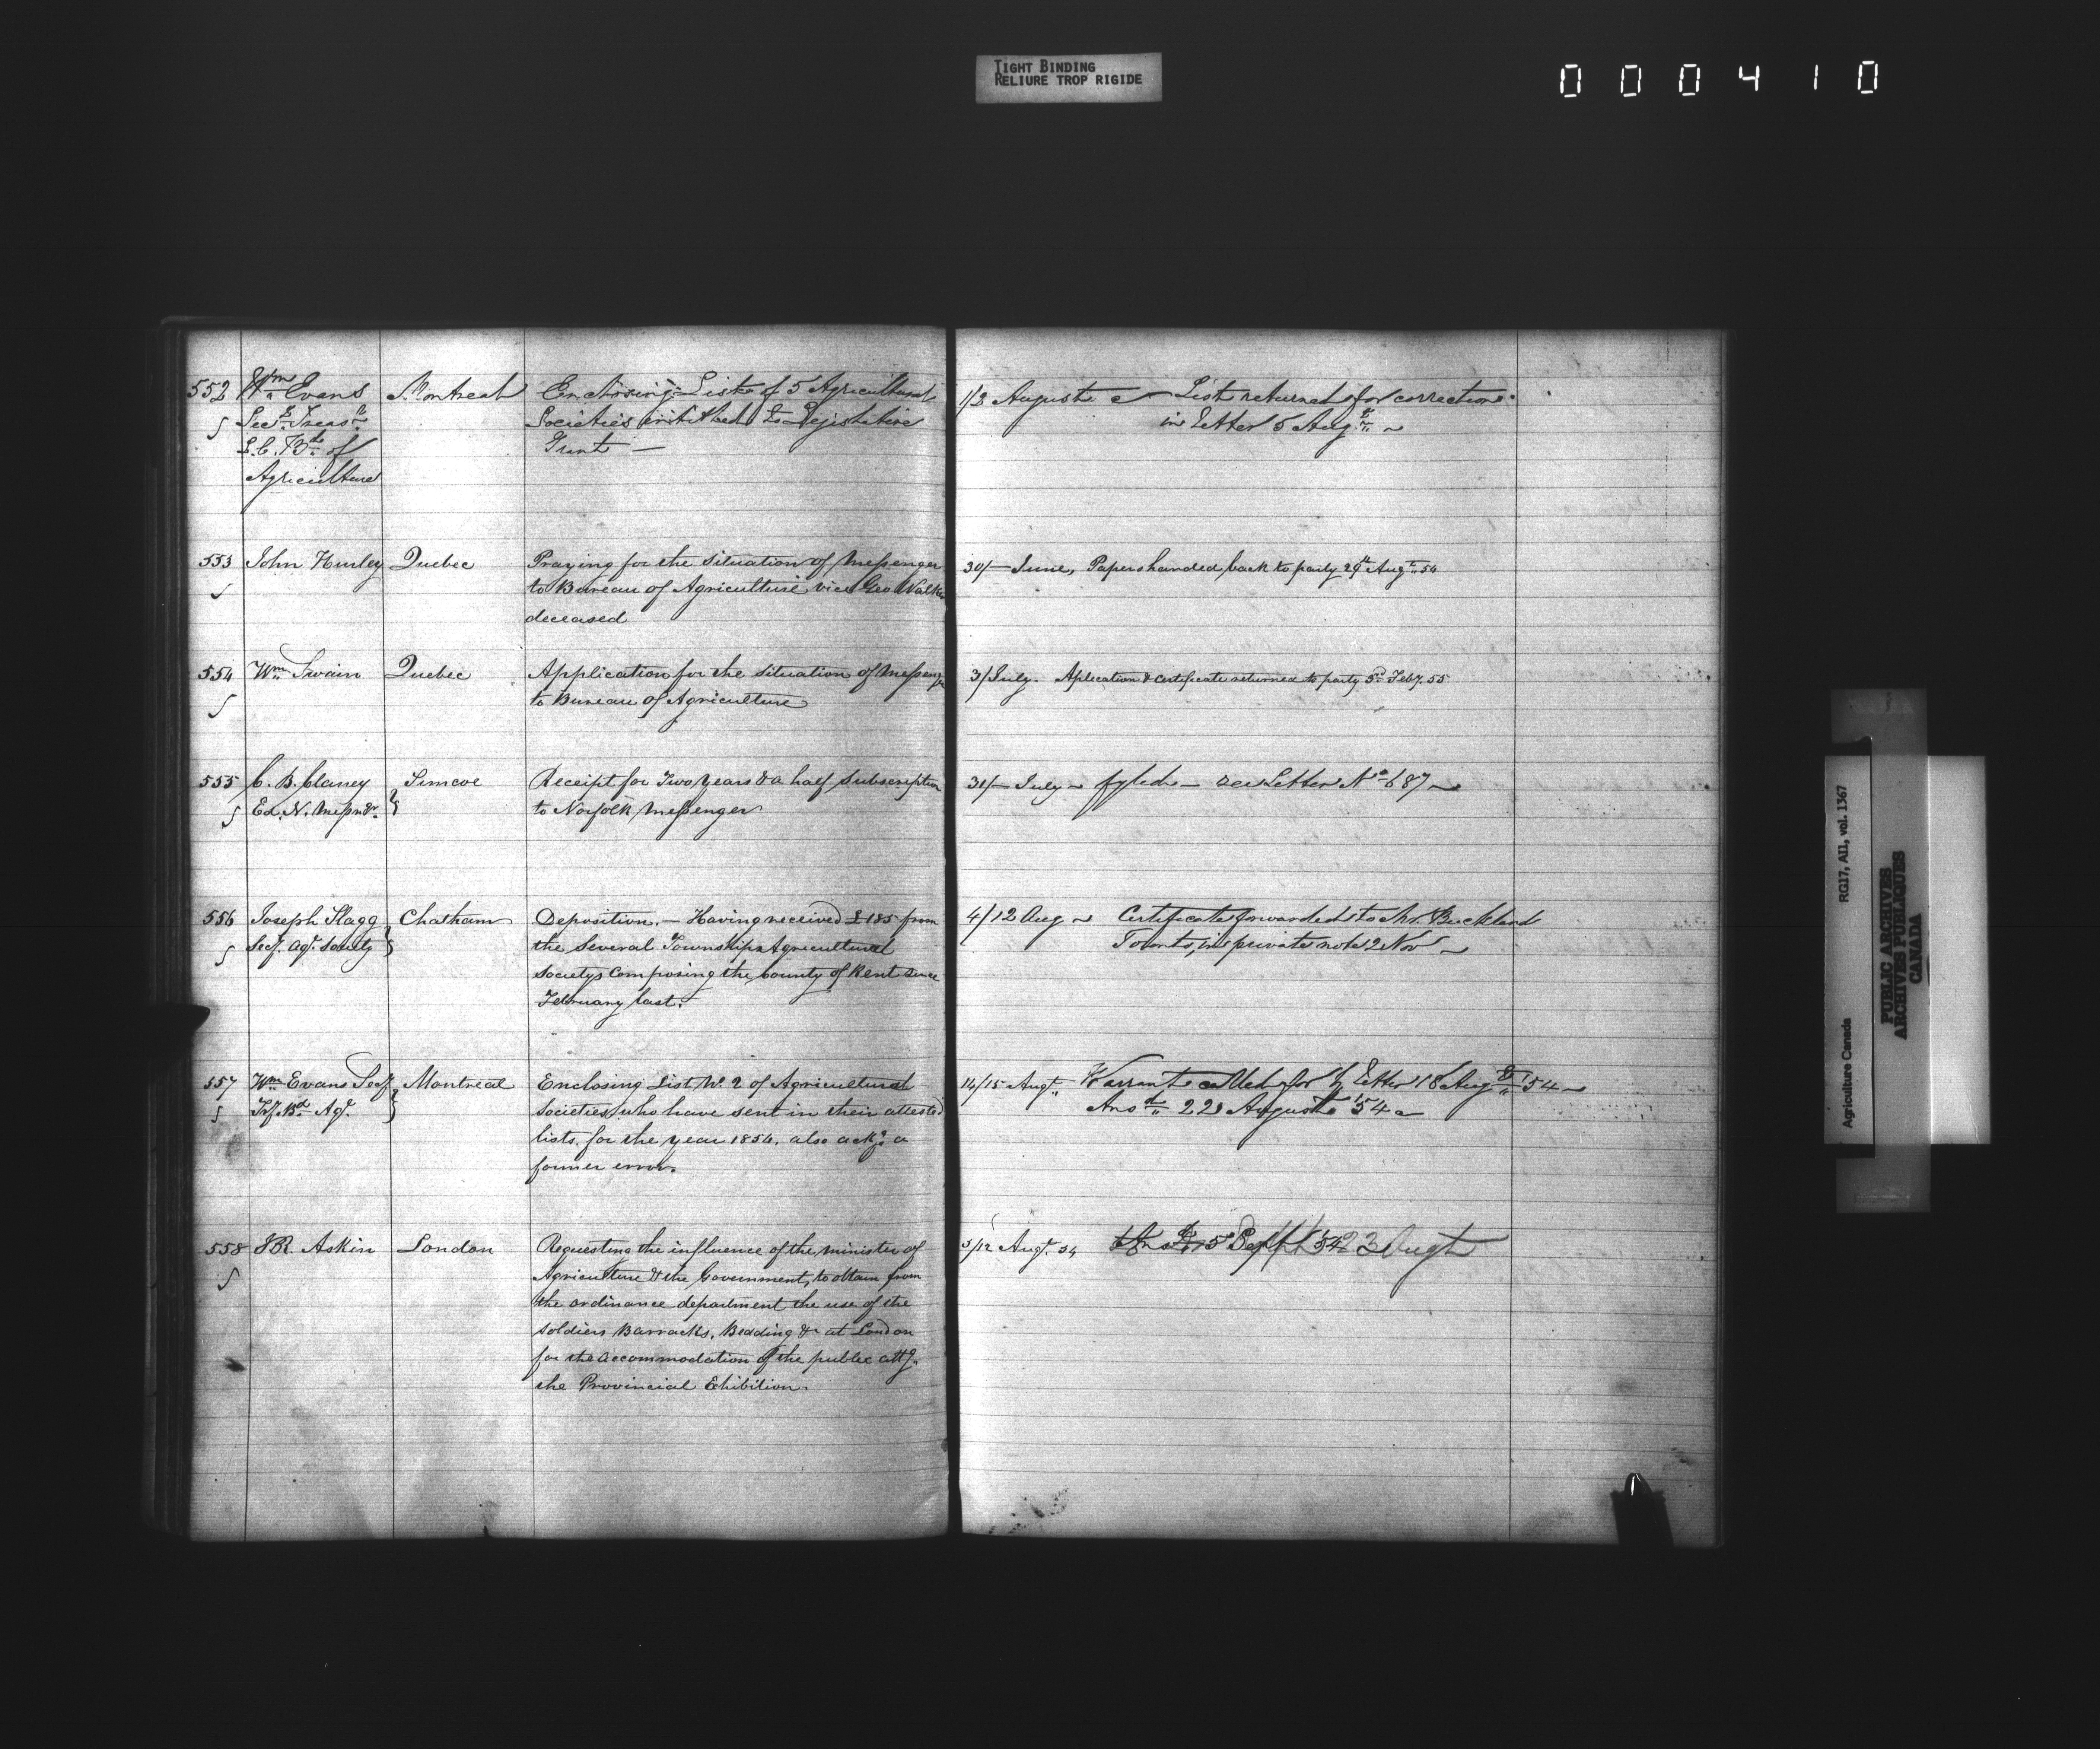 TIGHT BINDING
RELIURE TROP RIGIDE
000410
552 Wm Evans Montreal Enclosing List of 5 Agricultural 1/3 August List returned for correction
Secy Treasr Societies entitled to Legislative in letter 5 Augt
L.C. Bd of Grant —
Agriculture
553 John Hurley Quebec Praying for the situation of Messenger 30/— June, Papers handed back to party 29th Augt 54
to Bureau of Agriculture vice Geo Walker
deceased
554 Wm Swain Quebec Application for the situation of Messenger 3/ July. Aplication & certificate returned to party 5 Feby. 55
to Bureau of Agriculture
555 C. B. Clancy Simcoe Receipt for Two years & a half Subscription 31/— July fyled — see Letter No 687
Ed. N. Messngr. to Norfolk Messenger
556 Joseph Flagg Chatham Deposition. — Having received £185 from 4/12 Aug Certificate forwarded to Mr. Buckland
Secy. Agr. Socity the several Townships Agricultural Toronto, in private note 2 Nov
Societys composing the County of Kent since
February last.
557 Wm Evans Secy Montreal Enclosing List No. 2 of Agricultural 14/15 Augt. Warrant called for by letter 18 Augt 54
Try. Bd Agr Societies who have sent in their attested Ansd 22 August 54
lists, for the year 1854. also ackg a
former error.
558 J.R. Askin London Requesting the influence of the minister of 5/12 Augt. 54 Ansd 5 Sept 54 23 Augt
Agriculture & the Government, to obtain from
the ordinance department the use of the
soldiers Barracks, Bedding &c at London
for the accommodation of the public attg.
the Provincial Ehibition.
Agriculture Canada RG17, AII, vol. 1367
PUBLIC ARCHIVES
ARCHIVES PUBLIQUES
CANADA